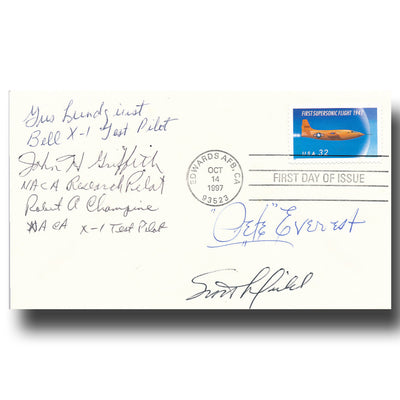 Gus Lundquist
Bell X-1 Test Pilot
John H Griffith
NACA Research Pilot
Robert A Champine
NACA X-1 Test Pilot
FIRST SUPERSONIC FLIGHT 1947
USA 32
EDWARDS AFB, CA
OCT
14
1997
93523
FIRST DAY OF ISSUE
"Pete" Everest